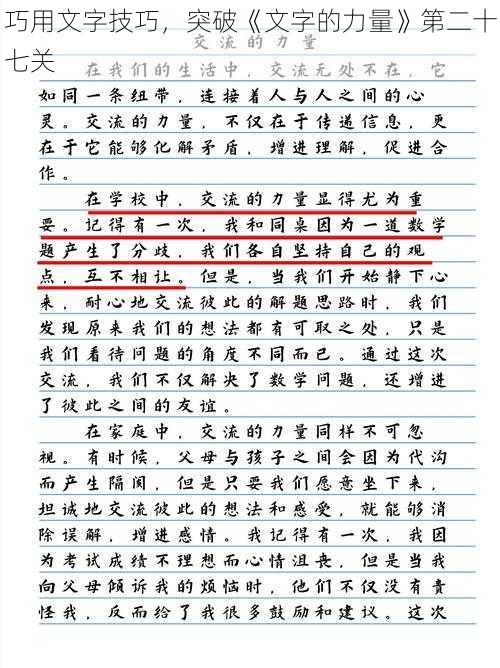 巧用文字技巧，突破《文字的力量》第二十
七关
交流的力量
在我们的生活中，交流无处不在，它
如同一条纽带，连接着人与人之间的心
灵。交流的力量，不仅在于传递信息，更
在于它能够化解矛盾，增进理解，促进合
作。
在学校中，交流的力量显得尤为重
要。记得有一次，我和同桌因为一道数学
题产生了分歧，我们各自坚持自己的观
点，互不相让。但是，当我们开始静下心
来，耐心地交流彼此的解题思路时，我们
发现原来我们的想法都有可取之处，只是
我们看待问题的角度不同而已。通过这次
交流，我们不仅解决了数学问题，还增进
了彼此之间的友谊。
在家庭中，交流的力量同样不可忽
视。有时候，父母与孩子之间会因为代沟
而产生隔阂，但是只要我们愿意坐下来，
坦诚地交流彼此的想法和感受，就能够消
除误解，增进感情。我记得有一次，我因
为考试成绩不理想而心情沮丧，但是当我
向父母倾诉我的烦恼时，他们不仅没有责
怪我，反而给了我很多鼓励和建议。这次